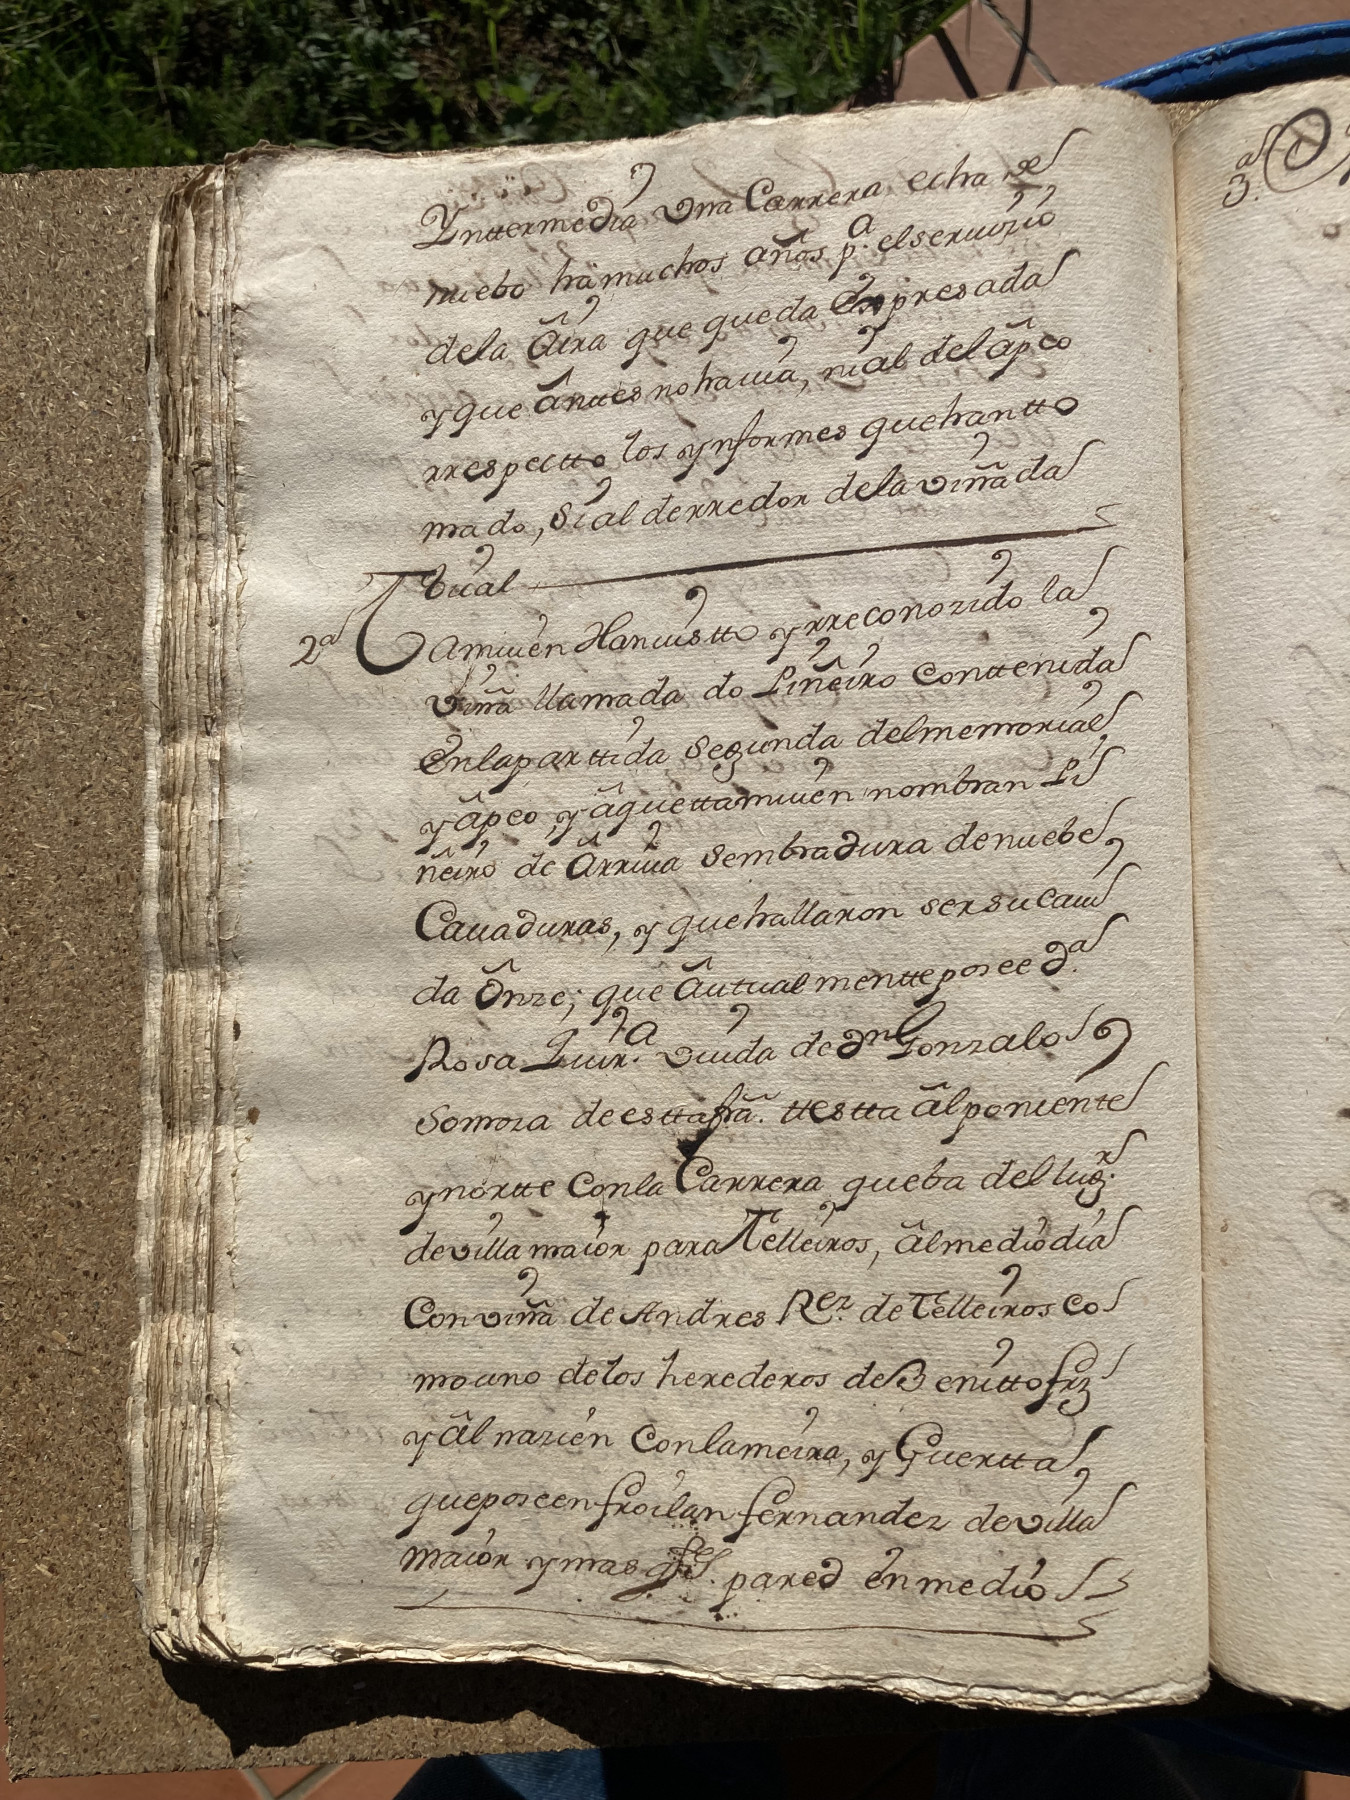 Ynttermedia Una Carrera echa de
nuebo ha muchos años p.ª el servizio
dela Âira que queda Expresada
y que Ânttes no havia, ni al del âpeo
rrespectto los ynformes que han tto
mado, si al derredor dela viña da
tbial
2ª Tamiven Han visto y rreconozido la
viña llamada do Piñeiro Conttenida
En la parttida Segunda del memorial
y âpeo, y â que ttamiven nombran Pi
ñeiro de Ârriva Sembradura de nuebe
Cavaduras, y que hallaron ser su cavi
da Ônze; que Âutualmentte posee D.ª
Rosa Quir.ª viuda de Dn Gonzalo
Somoza de estta frã. ttestta âl poniente
y nortte Con la Carrera que ba del lug.r
de villamaior para Telleiros, âl mediodia
Con viña de Andres Rez. de Telleiros co
mo uno de los herederos de Benitto frz
y âl nazien Con lameira, y Guertta
que poseen froilan fernandez de villa
maior y mas pared en medio
3.ª